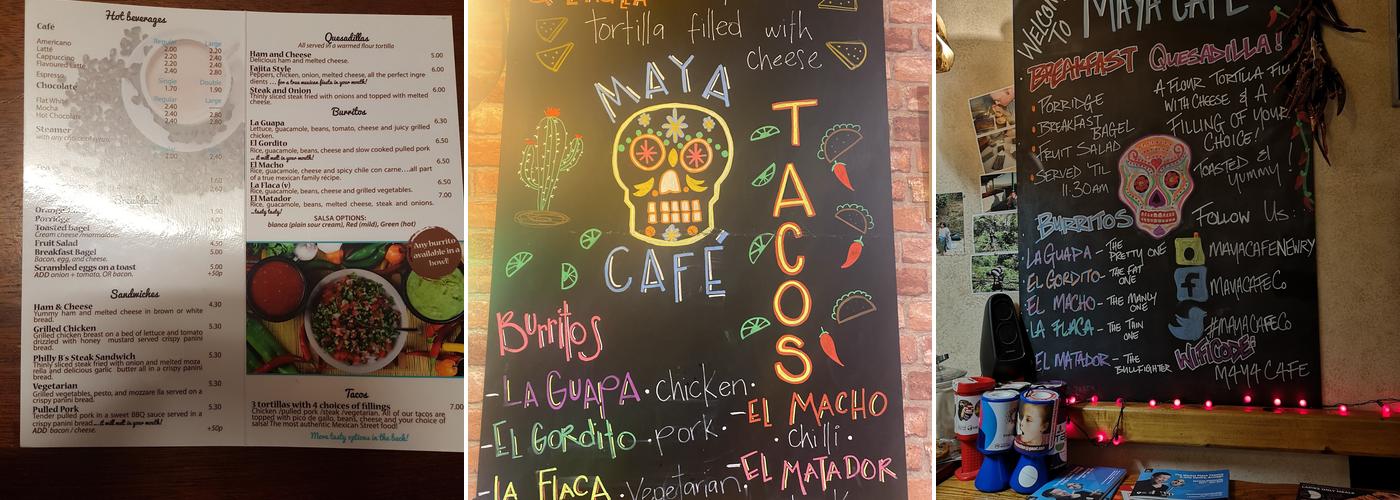 Hot beverages
Café
Regular Large
Americano 2.00 2.20
Latté 2.20 2.40
Cappuccino 2.20 2.40
Flavoured Latte 2.40 2.80
Single Double
Espresso 1.70 1.90
Chocolate
Regular Large
Flat White 2.40
Mocha 2.40 2.80
Hot Chocolate 2.40 2.80
Steamer
with any choice of syrup.
2.00 2.40
1.60
2.60
Breakfast
1.90
Porridge 4.00
Toasted Bagel
Cream cheese/marmalade.
Fruit Salad 4.50
Breakfast Bagel 5.00
Bacon, egg, and cheese.
Scrambled eggs on a toast 5.00
ADD onion + tomato, OR bacon. +50p
Sandwiches
Ham & Cheese 4.30
Yummy ham and melted cheese in brown or white
bread.
Grilled Chicken 5.30
Grilled chicken breast on a bed of lettuce and tomato
drizzled with honey mustard served crispy panini
bread.
Philly B's Steak Sandwich 5.30
Thinly sliced steak fried with onion and melted moza
rella and delicious garlic butter all in a crispy panini
bread.
Vegetarian 5.30
Grilled vegetables, pesto, and mozzare lla served on a
crispy panini bread.
Pulled Pork 5.30
Tender pulled pork in a sweet BBQ sauce served in a
crispy panini bread...it will melt in your mouth!
ADD bacon / cheese. +50p
Quesadillas
All served in a warmed flour tortilla
Ham and Cheese 5.00
Delicious ham and melted cheese.
Fajita Style 6.00
Peppers, chicken, onion, melted cheese, all the perfect ingre
dients ... for a true mexican fiesta in your mouth!
Steak and Onion 6.00
Thinly sliced steak fried with onions and topped with melted
cheese.
Burritos
La Guapa 6.30
Lettuce, guacamole, beans, tomato, cheese and juicy grilled
chicken.
El Gordito 6.50
Rice, guacamole, beans, cheese and slow cooked pulled pork
... it will melt in your mouth!
El Macho 6.50
Rice, guacamole, cheese and spicy chile con carne...all part
of a true mexican family récipe.
La Flaca (v) 6.50
Rice, guacamole, beans, cheese and grilled vegetables.
El Matador 7.00
Rice, guacamole, beans, melted cheese, steak and onions.
..tasty tasty!
SALSA OPTIONS:
blanca (plain sour cream), Red (mild), Green (hot)
Any burrito
available in a
bowl!
Tacos
3 tortillas with 4 choices of fillings 7.00
Chicken /pulled pork /steak /vegetarian. All of our tacos are
topped with pico de gallo, beans, cheese and your choice of
salsa! The most authentic Mexican Street food!
More tasty options in the back!
tortilla filled with
cheese
MAYA
CAFÉ
TACOS
Burritos
-LA GUAPA · chicken·
-EL GORDITO · pork·
-LA FLACA · Vegetarian·
-EL MACHO
· chilli ·
-EL MATADOR
WELCOME
TO
MAYA CAFÉ
BREAKFAST
· PORRIDGE
· BREAKFAST
BAGEL
· FRUIT SALAD
SERVED 'TIL
11.30AM
QUESADILLA!
A FLOUR TORTILLA FILL
WITH CHEESE & A
FILLING OF YOUR
CHOICE!
TOASTED &
YUMMY!
BURRITOS
· LA GUAPA - THE
PRETTY ONE
· EL GORDITO - THE FAT
ONE
· EL MACHO - THE MANLY
ONE
· LA FLACA - THE THIN
ONE
· EL MATADOR - THE
BULLFIGHTER
FOLLOW US:
MAYACAFENEWRY
MAYACAFECO
#MAYACAFECO
WIFI CODE:
MAYA CAFE